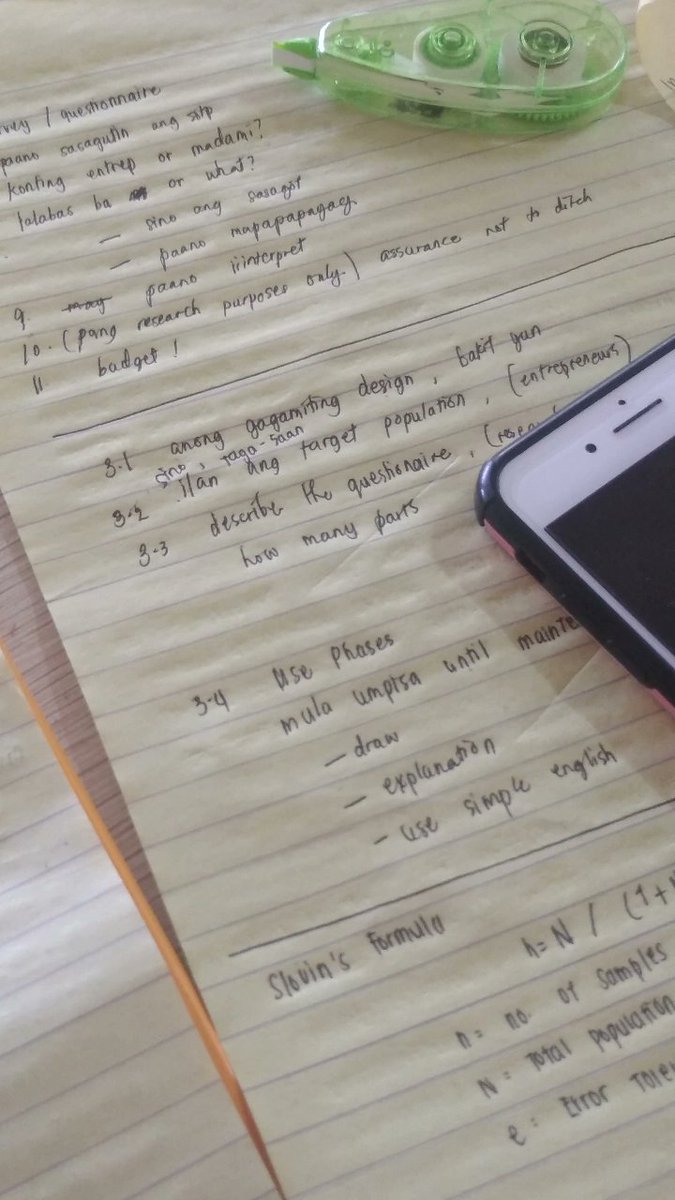 survey / questionnaire
paano sasagutin ang
konting entrep or madami?
lalabas ba or what?
— sino ang sasagot
— paano mapapapagag
9. paano iiinterpret
10. (pang research purposes only.) assurance not to ditch
11 badget!
3.1 anong gagamiting design, bakit yun
sino, taga saan
3.2 ilan ang target population, (entrepreneurs)
3.3 describe the questionaire, (resea
how many parts
3.4 Use Phases
mula umpisa until mainte
— draw
— explanation
— use simple english
Slovin's Formula n = N / (1+N
n = no. of samples
N = Total population
e = Error Tole